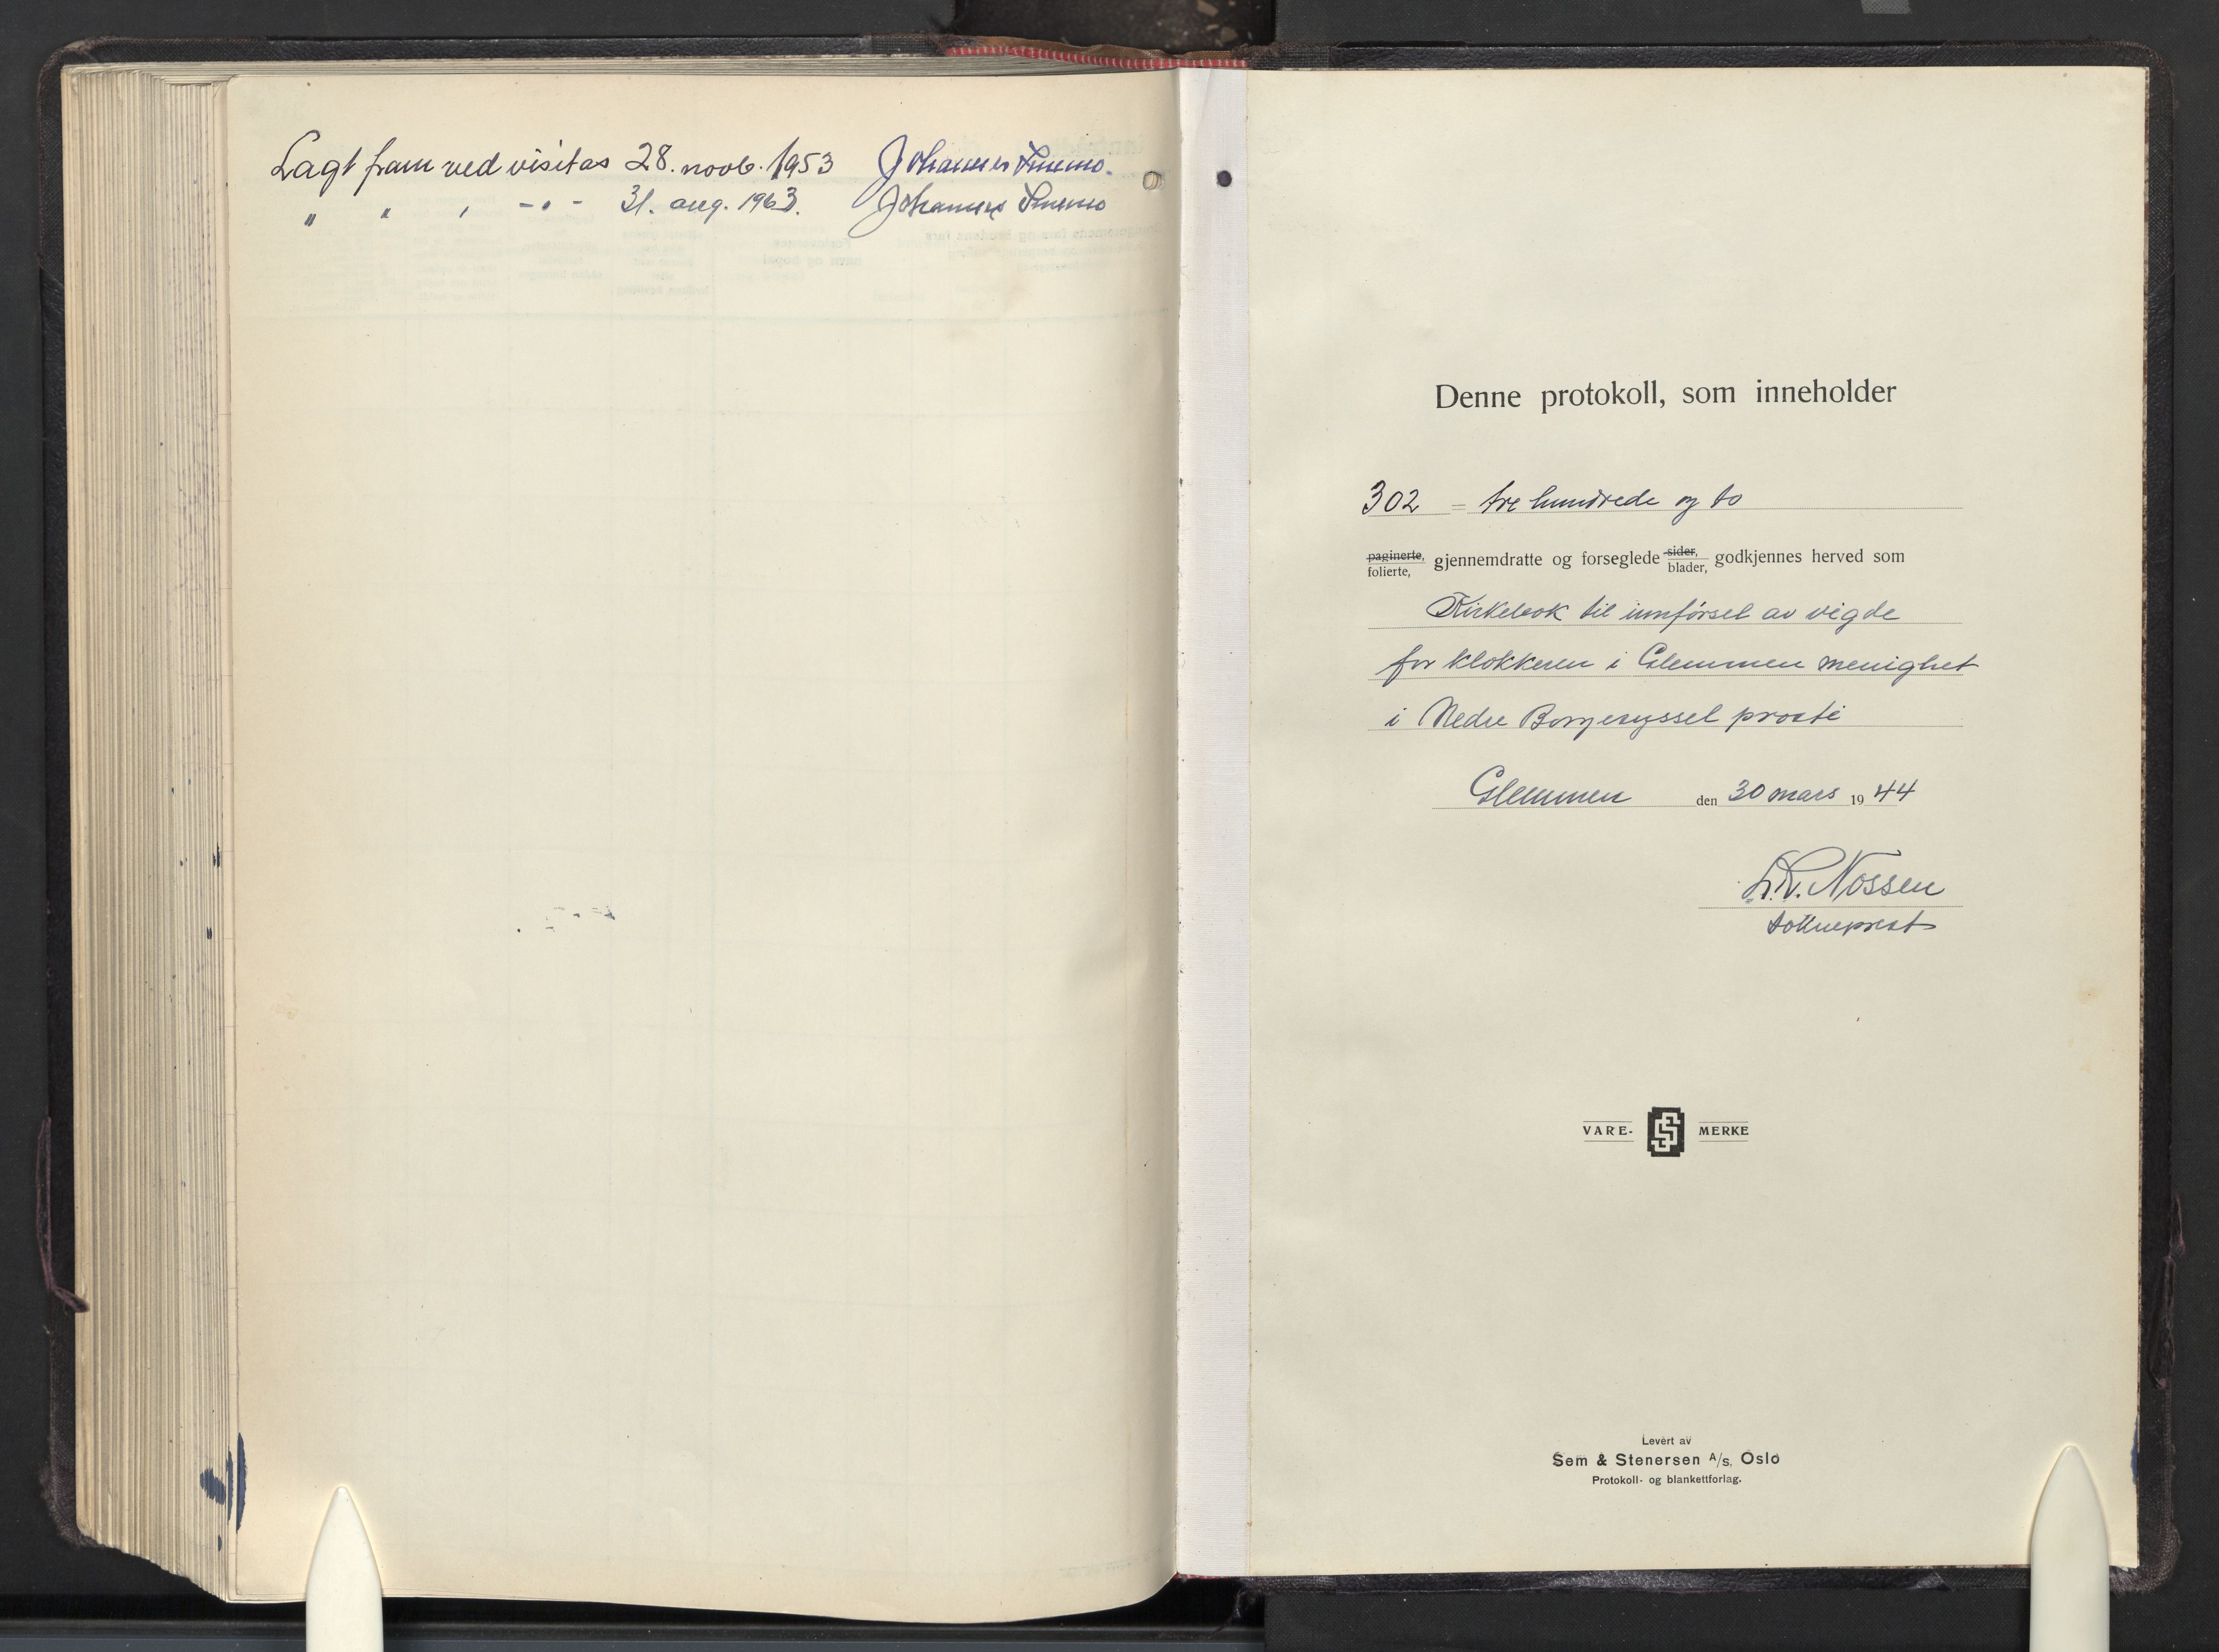 Lagt fram ved visitas 28. novb. 1953 Johannes Smemo.
" " " -"- 31. aug. 1963. Johannes Smemo
Denne protokoll, som inneholder
302 = tre hundrede og to
paginerte, folierte, gjennemdratte og forseglede sider, blader, godkjennes herved som
Kirkebok til innførsel av vigde
for klokkeren i Glemmen menighet
i Nedre Borgesyssel prosti
Glemmen den 30 mars 1944
Nossen
sokneprest
VARE- SS MERKE
Levert av
Sem & Stenersen A/s, Oslo
Protokoll- og blankettforlag.